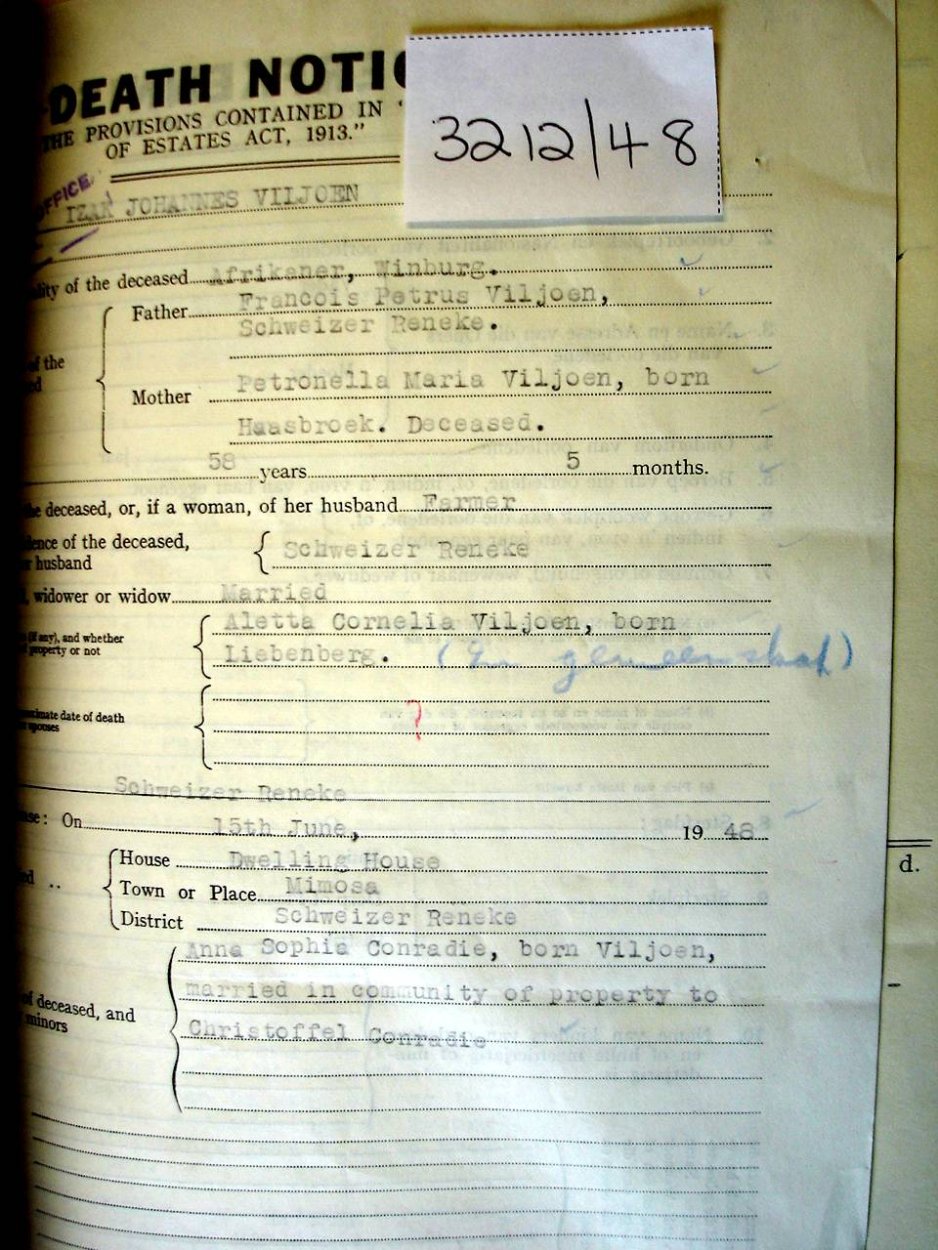 DEATH NOTIC
3212/48
THE PROVISIONS CONTAINED IN "
OF ESTATES ACT, 1913."
OFFICE
IZAK JOHANNES VILJOEN
lity of the deceased Afrikaner, Winburg.
Father Francois Petrus Viljoen,
Schweizer Reneke.
of the
Mother Petronella Maria Viljoen, born
Haasbroek. Deceased.
58 years 5 months.
deceased, or, if a woman, of her husband Farmer
dence of the deceased,
husband
Schweizer Reneke
widower or widow Married
(if any), and whether
property or not
Aletta Cornelia Viljoen, born
Liebenberg. (In gemeenskap)
ximate date of death
spouses
?
Schweizer Reneke
ase: On 15th June, 1948
House Dwelling House
Town or Place Mimosa
District Schweizer Reneke
Anna Sophia Conradie, born Viljoen,
married in community of property to
of deceased, and
minors
Christoffel Conradie
d.